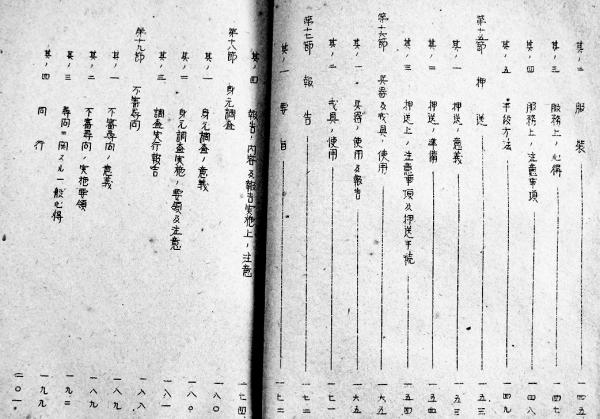 其ノ二 服装 一四五
其ノ三 服務上ノ心得 一四七
其ノ四 服務上ノ注意事項 一四八
其ノ五 手段方法 一四九
第十五節 押送 一五三
其ノ一 押送ノ意義 一五三
其ノ二 押送ノ準備 一五四
其ノ三 押送上ノ注意事項及押送手続 一五四
第十六節 兵器及戎具ノ使用 一六五
其ノ一 兵器ノ使用及報告 一六五
其ノ二 戎具ノ使用 一七一
第十七節 報告 一七二
其ノ一 要旨 一七二
其ノ四 報告ノ内容及報告実施上ノ注意 一七四
第十八節 身元調査 一八〇
其ノ一 身元調査ノ意義 一八〇
其ノ二 身元調査実施ノ要領及注意 一八一
其ノ三 調査実行報告 一八八
第十九節 不審尋問 一八八
其ノ一 不審尋問ノ意義 一八九
其ノ二 不審尋問ノ実施要領 一八九
其ノ三 尋問ニ関スル一般心得 一九二
其ノ四 同行 一九九
二〇一